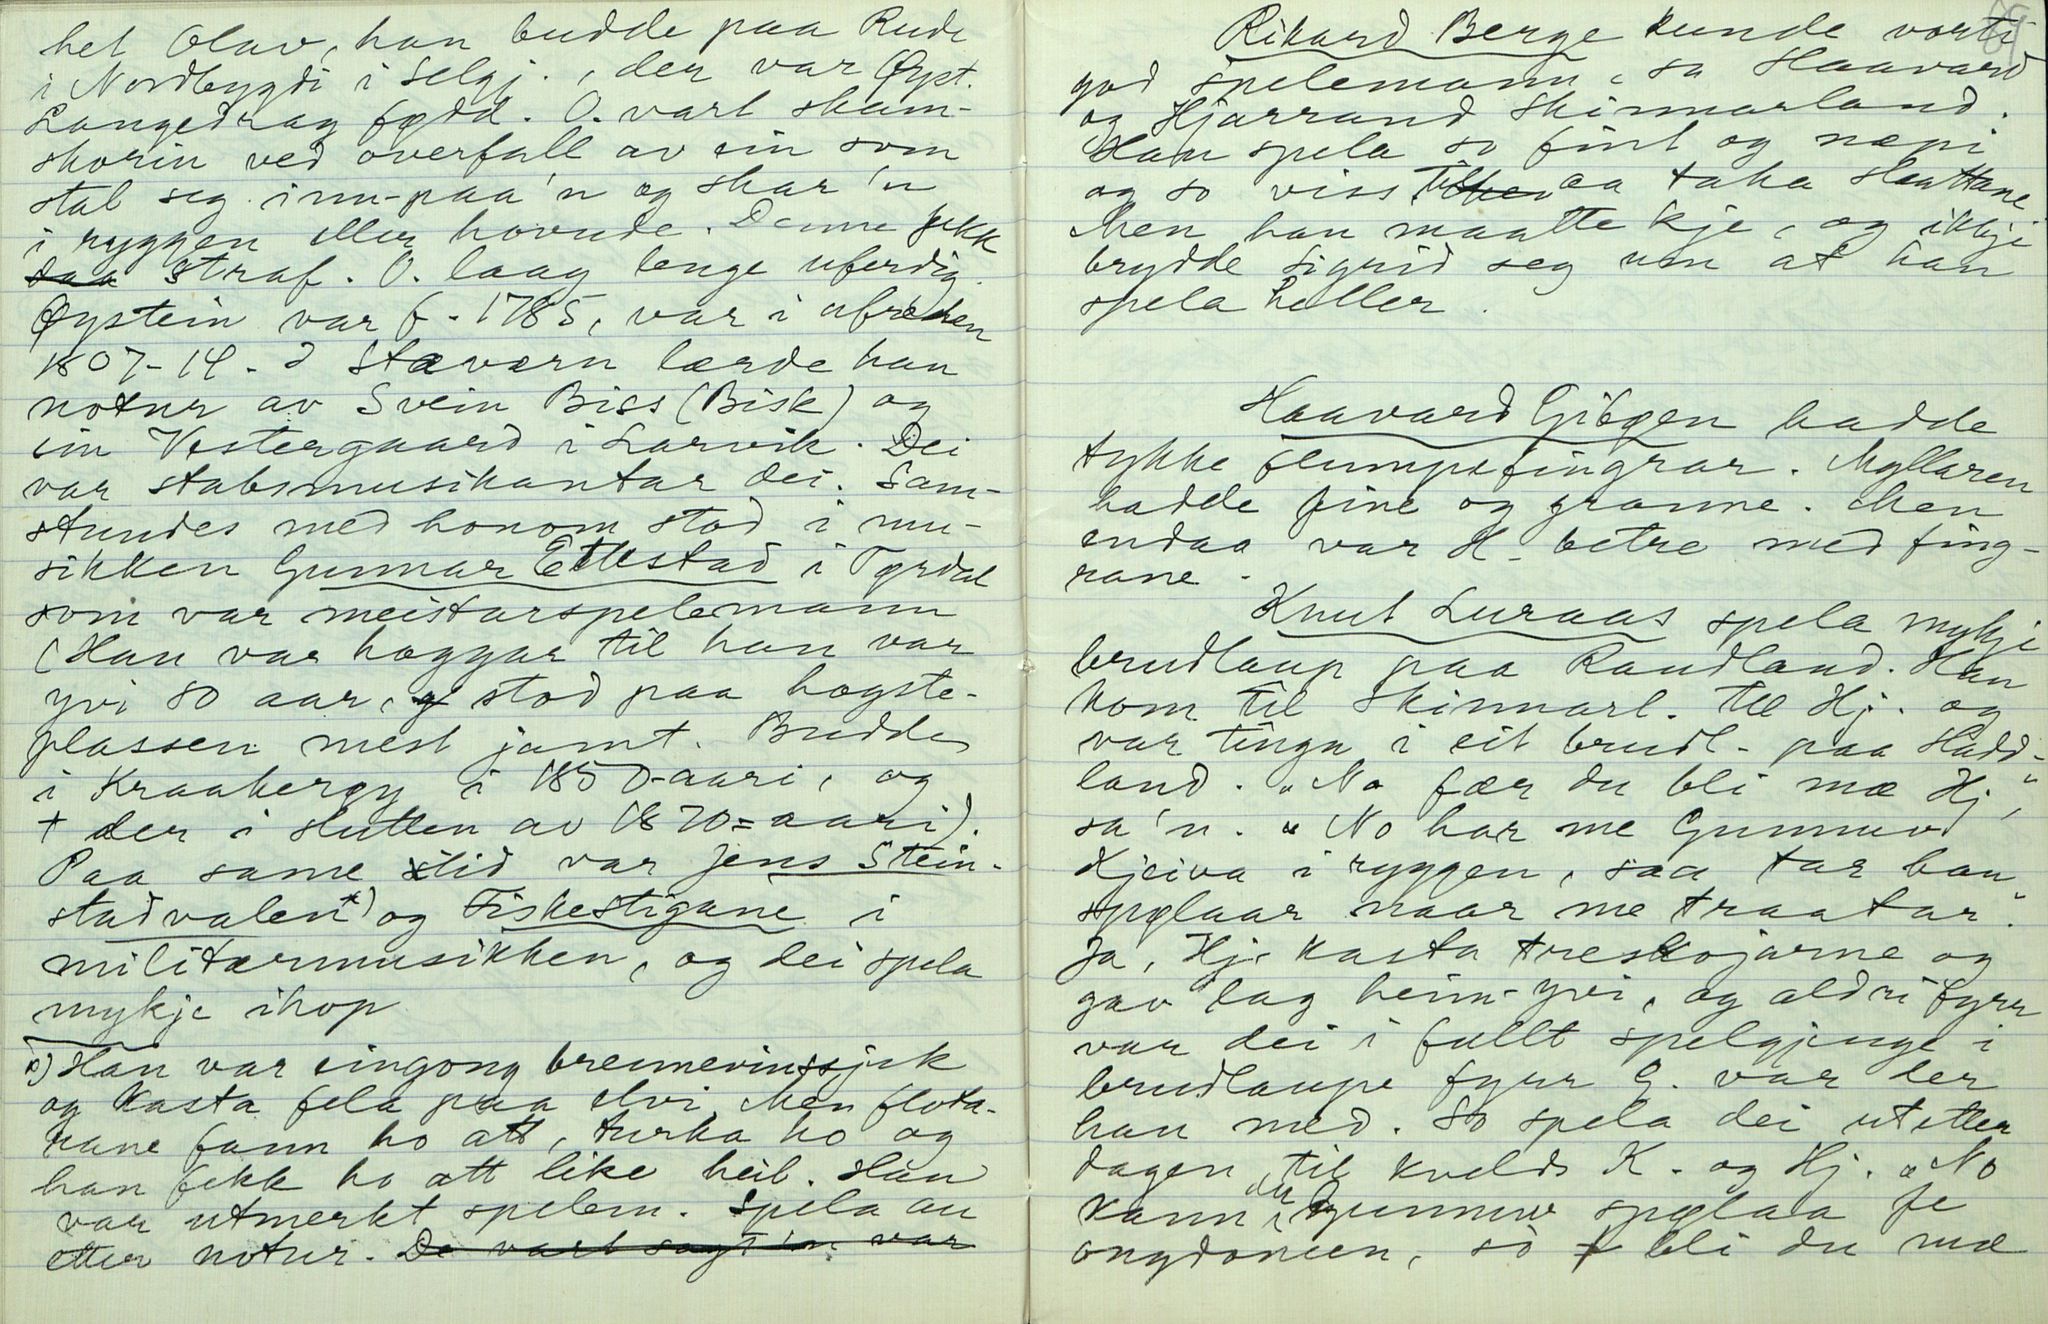 het Olav, han budde paa Rudi
i Nordbygdi i Selgj., der var Øyst.
Langedrag fødd. O. vart skam-
skorin ved overfall av ein som
stal seg inn-paa'n og skar'n
i ryggen eller hovude. Denne fekk
daa straf. O. laag lenge uferdig.
Øystein var f. 1785, var i ufreden
1807-14. I Staværn lærde han
notur av Svein Biss (Bisk) og
ein Vestergaard i Larvik. Dei
var stabsmusikantar dei. Sam-
stundes med honom stod i mu-
sikken Gunnar Ettestad i Tørdal
som var meistarspelemann
(Han var hoggar til han var
yvi 80 aar, og stod paa hogste-
plassen mest jamt. Budde
i Kraakerøy i 1850-aari, og
† der i slutten av 1870=aari).
Paa same tid var Jens Stein-
stadvalen*) og Fiskestigane i
militærmusikken, og dei spela
mykje ihop
*) Han var eingong brennevinssjuk
og kasta fela paa elvi. Men flota-
rane fann ho att, turka ho og
han fekk ho att like heil. Han
var utmerkt spelem. Spela au
etter notur. De vart sagt 'n var
69
Rikard Berge kunde vorti
god spelemann, sa Haavard
og Hjarrand Skinnarland.
Han spela so fint og næpi
og so viss til aa taka slaattane
Men han maatte kje, og ikkje
brydde Sigrid seg um at han
spela heller.
Haavard Gibøen hadde
tykke flumpefingrar. Myllaren
hadde fine og granne. Men
endaa var H. betre med fing-
rane.
Knut Luraas spela mykje
brudlaup paa Raudland. Han
kom til Skinnarl. til Hj. og
var tinga i eit brudl. paa Hadd-
land. "No fær du bli mæ Hj",
sa'n. "No har me Gunnuv
Kjeiva i ryggen, saa tar han
spølaar naar me traatar".
Ja, Hj. kasta treskojarne og
gav lag heim-yvi, og aldri fyrr
var dei i fullt spelgjenge i
brudlaupe fyrr G. var der
han med. So spela dei utetter
dagen til kvelds K. og Hj. "No
kann du Gunnuv spølaa fe
ongdomen, so bli du mæ